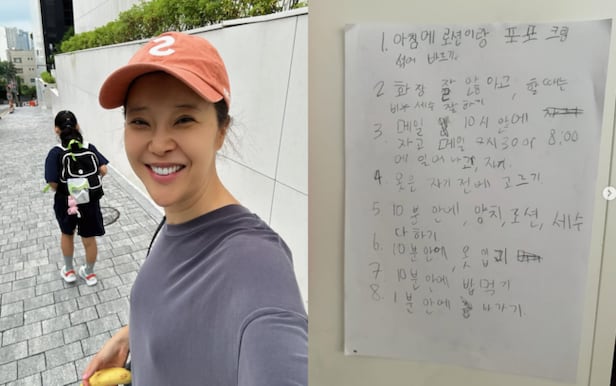 1. 아침에 로션이랑 포포 크림
섞어 바르기.
2 화장 잘 안하고, 할때는
세수 잘하기
3 매일 10시 안에
자고 매일 7시30이나 8:00
에 일어나고, 자기.
4. 옷은 자기전에 고르기.
5 10분 안에, 양치, 로션, 세수
다하기
6. 10분안에, 옷입기
7 10분안에 밥먹기
8. 1분 안에 나가기.